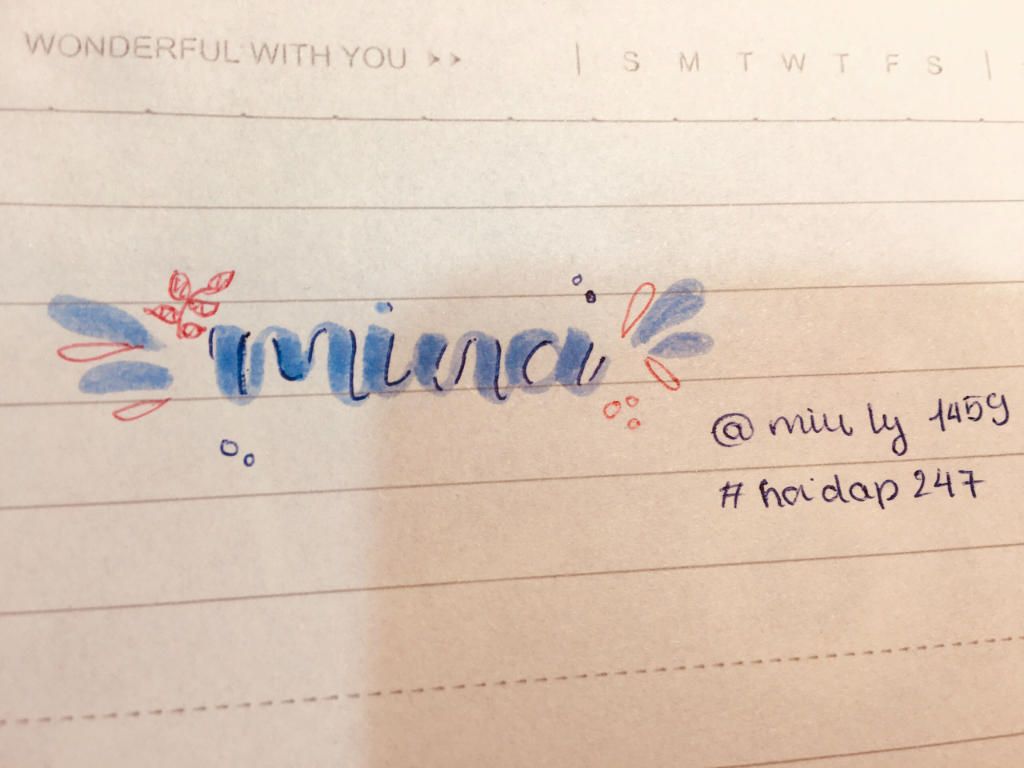 WONDERFUL WITH YOU >> | S M T W T F S |
mina
@miu ly 1459
#hoidap247